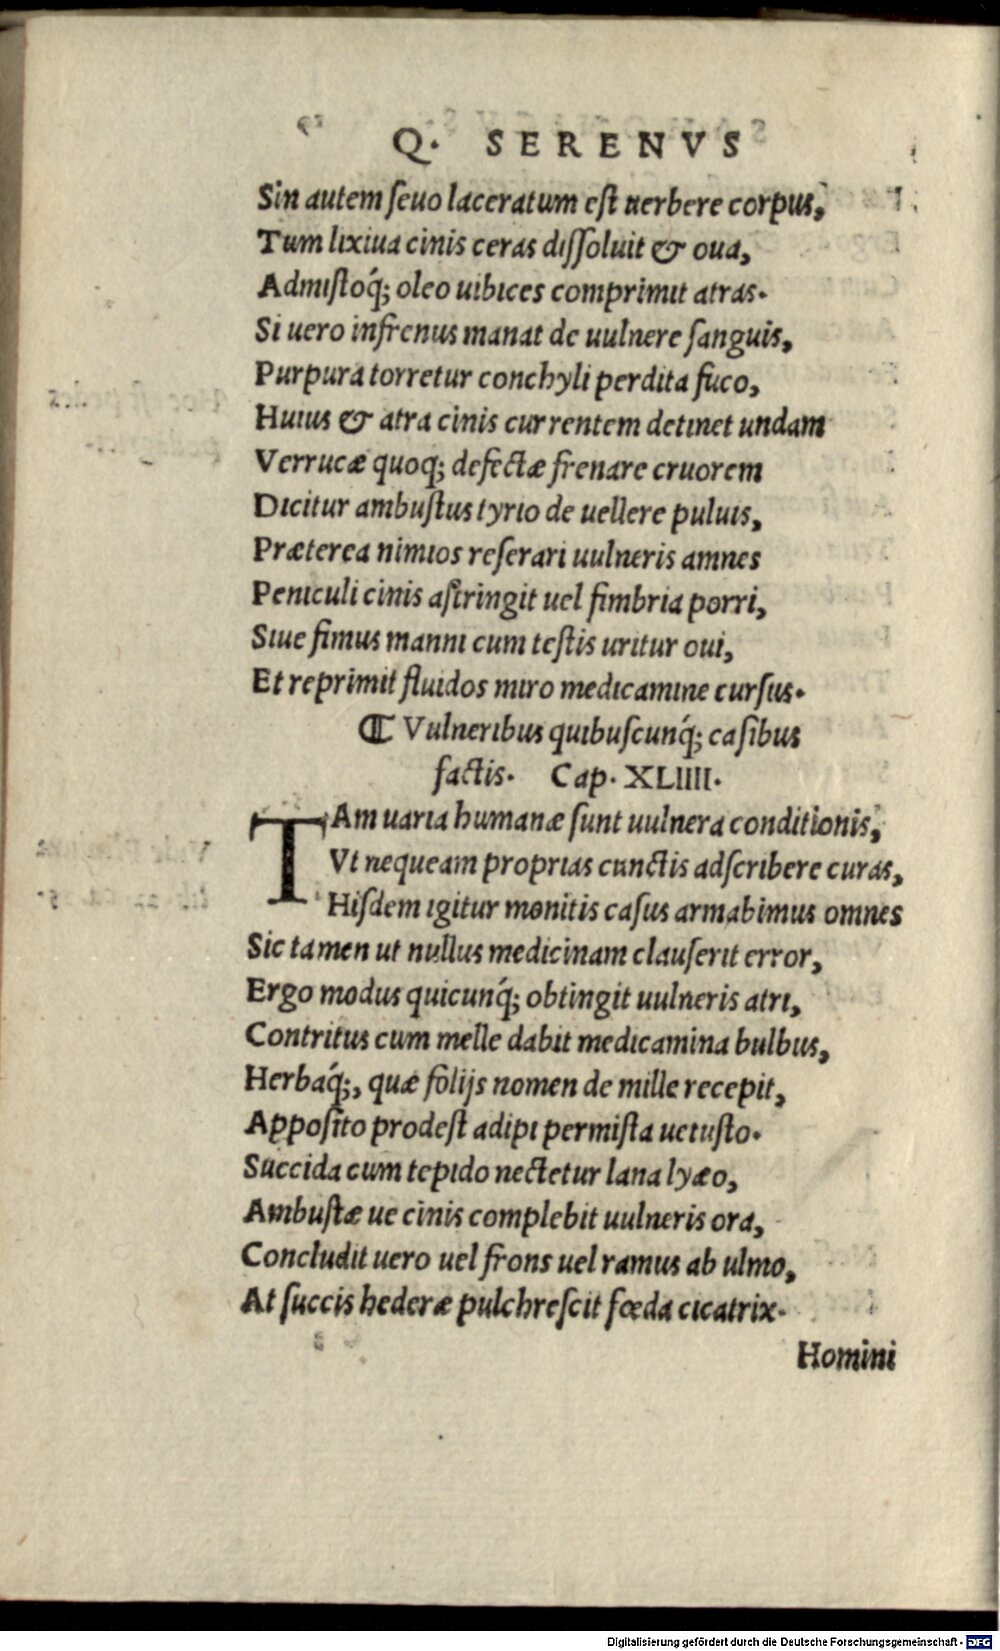 Q. SERENVS
Sin autem ſeuo laceratum eſt uerbere corpus,
Tum lixiua cinis ceras diſſoluit & oua,
Admiſtoq́; oleo uibices comprimit atras.
Si uero infrenus manat de uulnere ſanguis,
Purpura torretur conchyli perdita fuco,
Huius & atra cinis currentem detinet undam
Verrucæ quoq; defectæ frenare cruorem
Dicitur ambuſtus tyrio de uellere puluis,
Præterea nimios reſerari uulneris amnes
Peniculi cinis aſtringit uel fimbria porri,
Siue fimus manni cum teſtis uritur oui,
Et reprimit fluidos miro medicamine curſus.
¶ Vulneribus quibuſcunq́; caſibus
factis. Cap. XLIIII.
TAm uaria humanæ ſunt uulnera conditionis,
Vt nequeam proprias cunctis adſcribere curas,
Hiſdem igitur monitis caſus armabimus omnes
Sic tamen ut nullus medicinam clauſerit error,
Ergo modus quicunq́; obtingit uulneris atri,
Contritus cum melle dabit medicamina bulbus,
Herbaq́;, quæ folijs nomen de mille recepit,
Appoſito prodeſt adipi permiſta uetuſto.
Succida cum tepido nectetur lana lyæo,
Ambuſtæ ue cinis complebit uulneris ora,
Concludit uero uel frons uel ramus ab ulmo,
At ſuccis hederæ pulchreſcit fœda cicatrix.
Homini
Digitalisierung gefördert durch die Deutsche Forschungsgemeinschaft - DFG